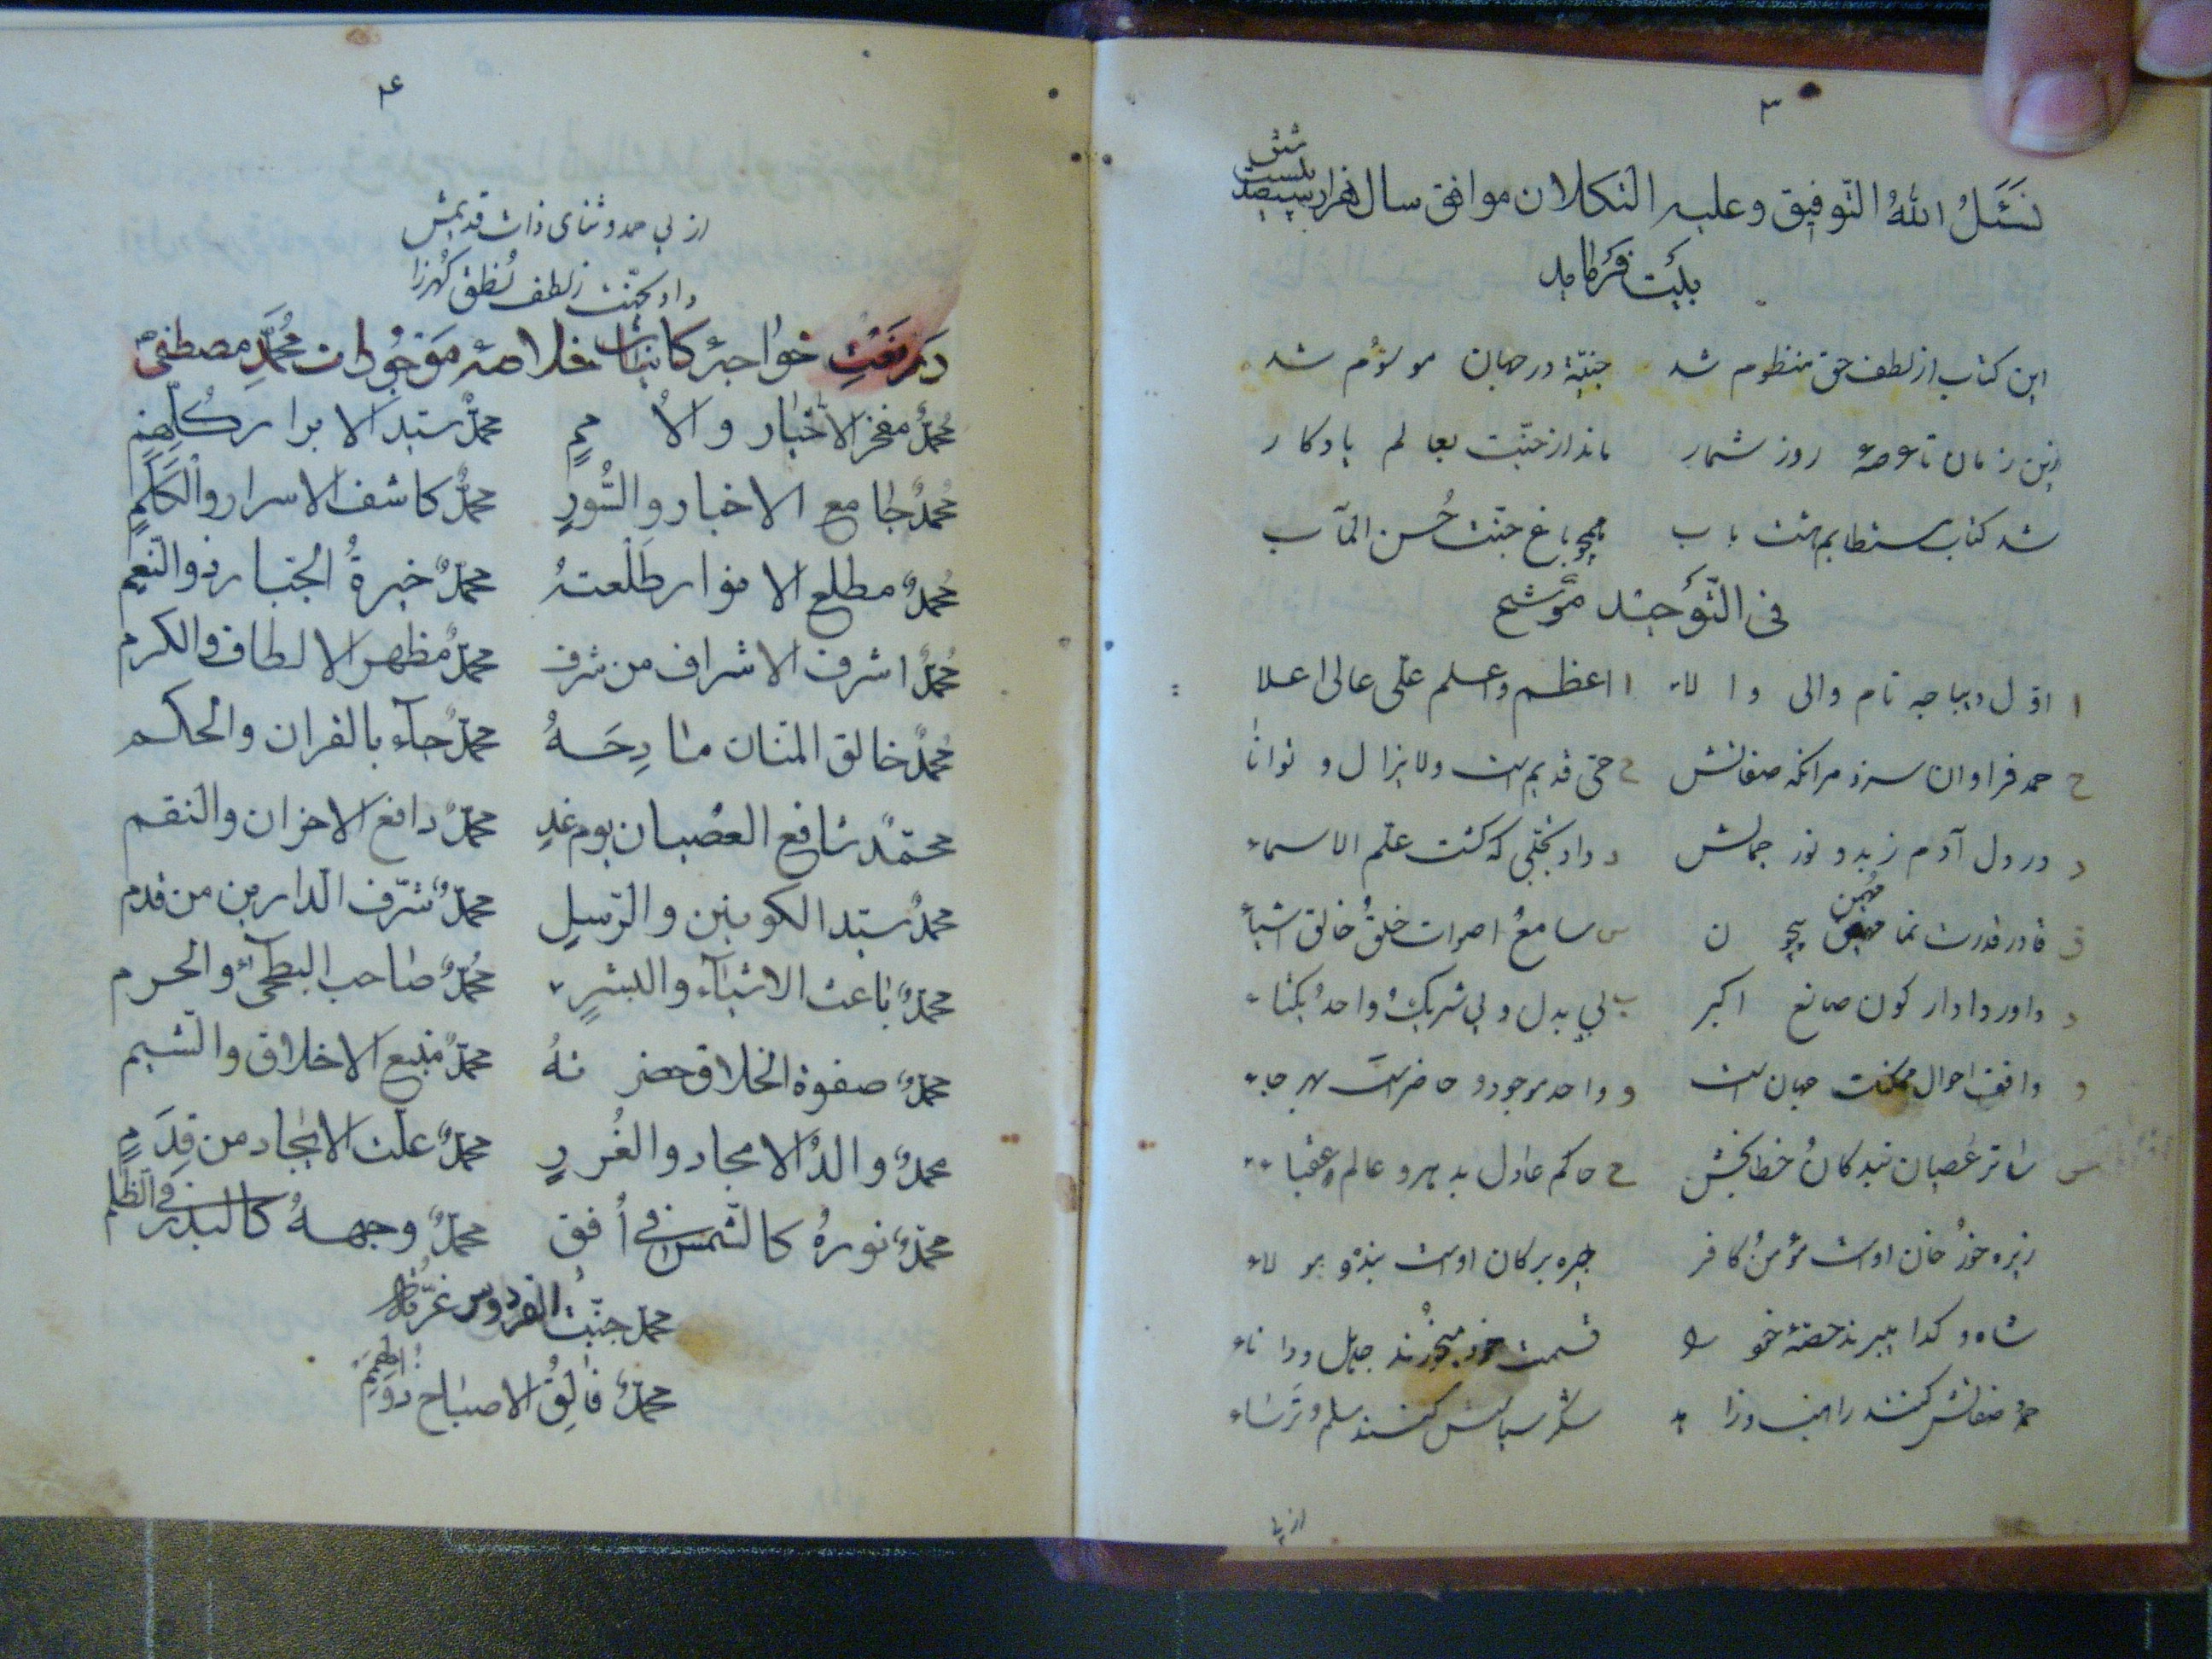 ۳
نَسْئَلُ اللهُ التّوفیق وعلیه التکلان موافق سال هزار سیصد
بیست شش
بلیت قرطاید
این کتاب از لطف حق منظوم شد جنّة در جهان موسوم شد
زین زمان تا عرصهٔ روز شمار ماند از جنّت بعالم یادکار
شد کتاب مستطابم هشت باب همچو باغ جنّت حُسن المآب
فی التّوحید موشّح
ا اوّل دیباجه نام والی والاء ا اعظم و اعلم علی عالی اعلا
ح حمد فراوان سزد مرانکه صفاتش ح حیّ قدیم است ولایزال و توانا
د در دل آدم زبدو نور جمالش د داد تجلّی که کشت علّم الاسماء
ق قادر قدرت نما مهیمن بیچون س سامعُ اصوات خلقُ خالق اشیاءٔ
مُهیمن
د داور دادار کون صانع اکبر ب بی بدل و بی شریکُ واحدُ یکتاء
و واقف احوال ممکنات جهان است و واحد موجود و حاضرست بهر جاء
س ساتر عصیان بندکانُ خطا بخش ح حاکم عادل بدهر و عالم عقباء
ریزه خورُ خان اوست مؤمنُ کافر جیره برکان اوست بندهٔ و مولاء
شاه و کدا میبرند حصّهٔ خود را قسمت خود میخورند جاهل و داناء
حمدُ صفاتش کنند راهب و زاهد شکر سپاسش کنند مسلم و ترساء
از پی
۴
از پی حمد و ثنای ذات قدیمش
داد بجنّت ز لطف نُطق کهرزا
دَر نَعْتِ خواجهٔ کائنات خلاصهٔ مَوجُودات مُحمَّدِ مصطفیٰ
مُحمّدٌ مفخر الاخیار والاُممِ محمّدٌ سیّد الابرار کُلِّهمِ
مُحمّدٌ جامع الاخبار والسُّورِ محمّدٌ کاشف الاسرار والکَلمِ
مُحمّدٌ مطلع الانوار طَلْعتهُ محمّدٌ خیرةُ الجبّار ذوالنّعمِ
مُحمّدٌ اشرف الاشراف من شرف محمّدٌ مظهر الالطاف والکرم
مُحمّدٌ خالق المنّان مادِحَهُ محمّدٌ جآء بالقران والحکم
محمّدٌ شافع العصیان یوم غدٍ محمّدٌ دافع الاحزان والنقم
محمّدٌ سیّد الکونین والرّسلِ محمّدٌ شرّف الدّارین من قدم
محمّدٌ باعث الاشیآء والبشرِ مُحمّدٌ صاحب البطحآء والحرم
محمّدٌ صفوة الخلاق حضرته محمّدٌ منبع الاخلاق والشّیم
محمّدٌ والدُ الامجاد والغُررِ محمّدٌ علّت الایجاد من قِدَمٍ
محمّدٌ نورهُ کالشّمس فی اُفق محمّدٌ وجههُ کالبدر فی الظلم
محمّدٌ جنّت الفردوس غرّته
محمّدٌ فالِقُ الاصباح ذو الهِمَمِ